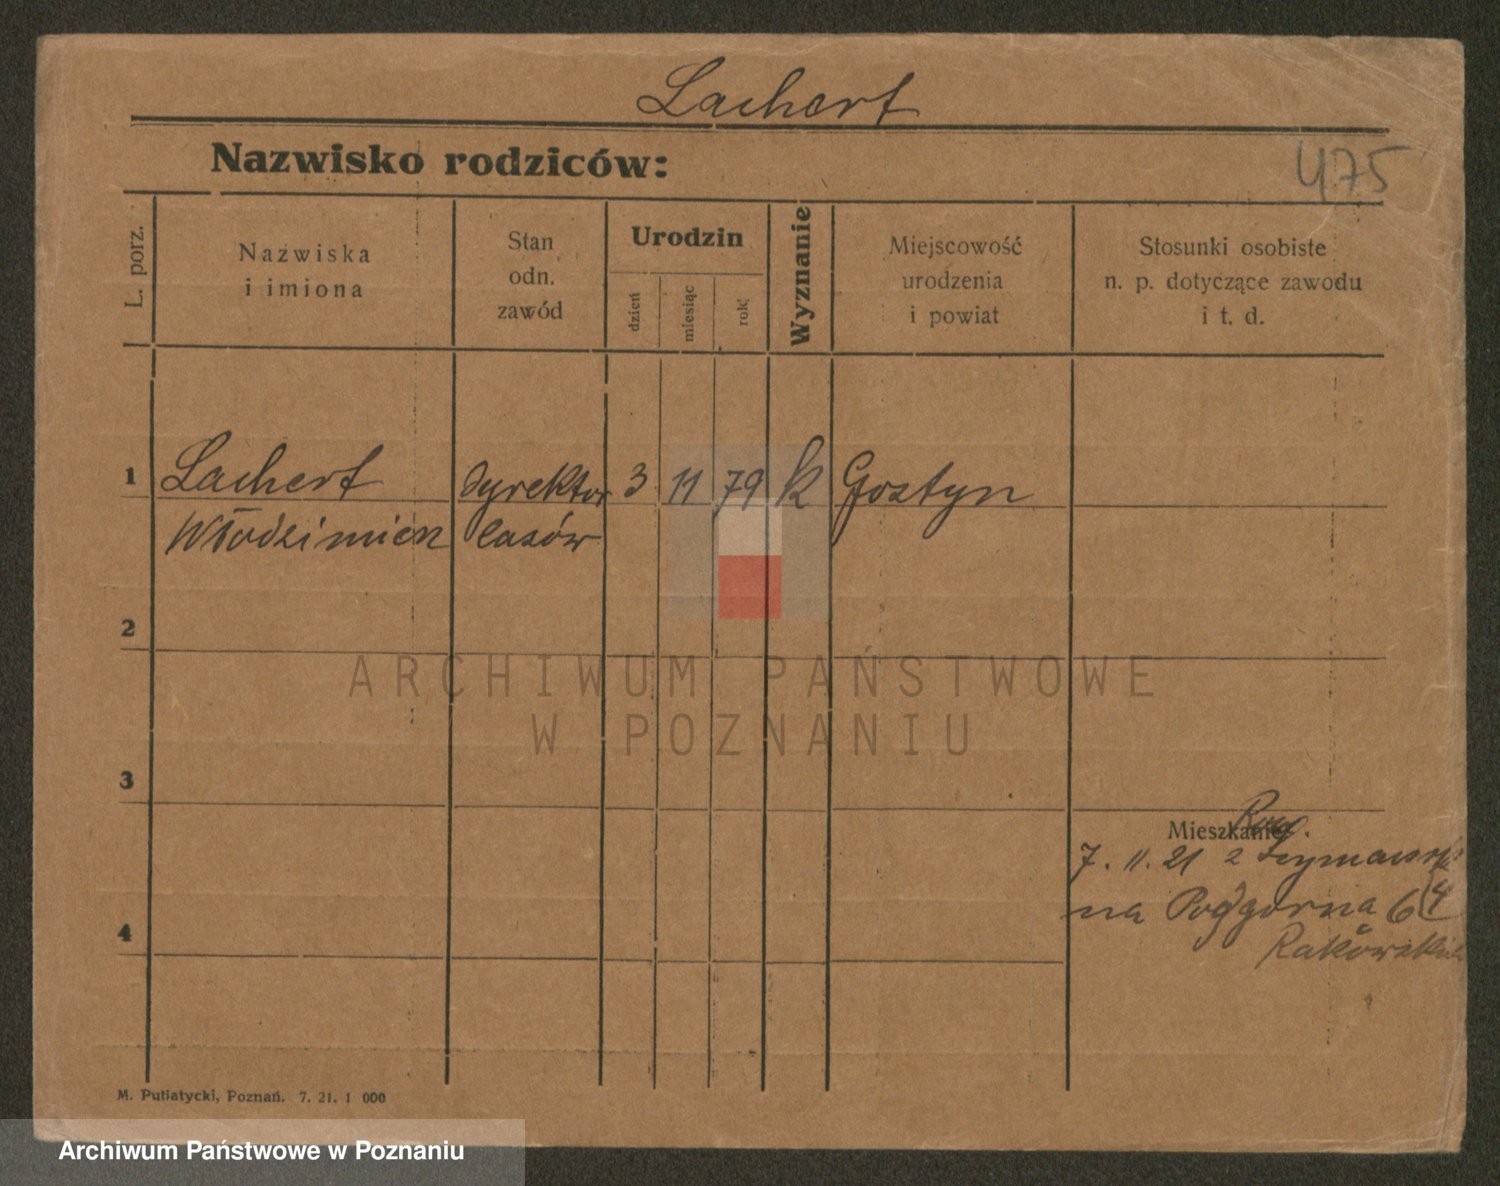 Lachert
Nazwisko rodziców:
475
L. porz.
Nazwiska
i imiona
Stan
odn.
zawód
Urodzin
dzień
miesiąc
rok
Wyznanie
Miejscowość
urodzenia
i powiat
Stosunki osobiste
n. p. dotyczące zawodu
i t. d.
1
Lachert
Włodzimierz
dyrektor
lasów
3
11
79
k
Gostyn
2
3
4
Mieszkanie
7. 11. 21 z
na Podgórna 6
M. Putiatycki, Poznań. 7. 21. 1 000
ARCHIWUM PAŃSTWOWE
W POZNANIU
Archiwum Państwowe w Poznaniu